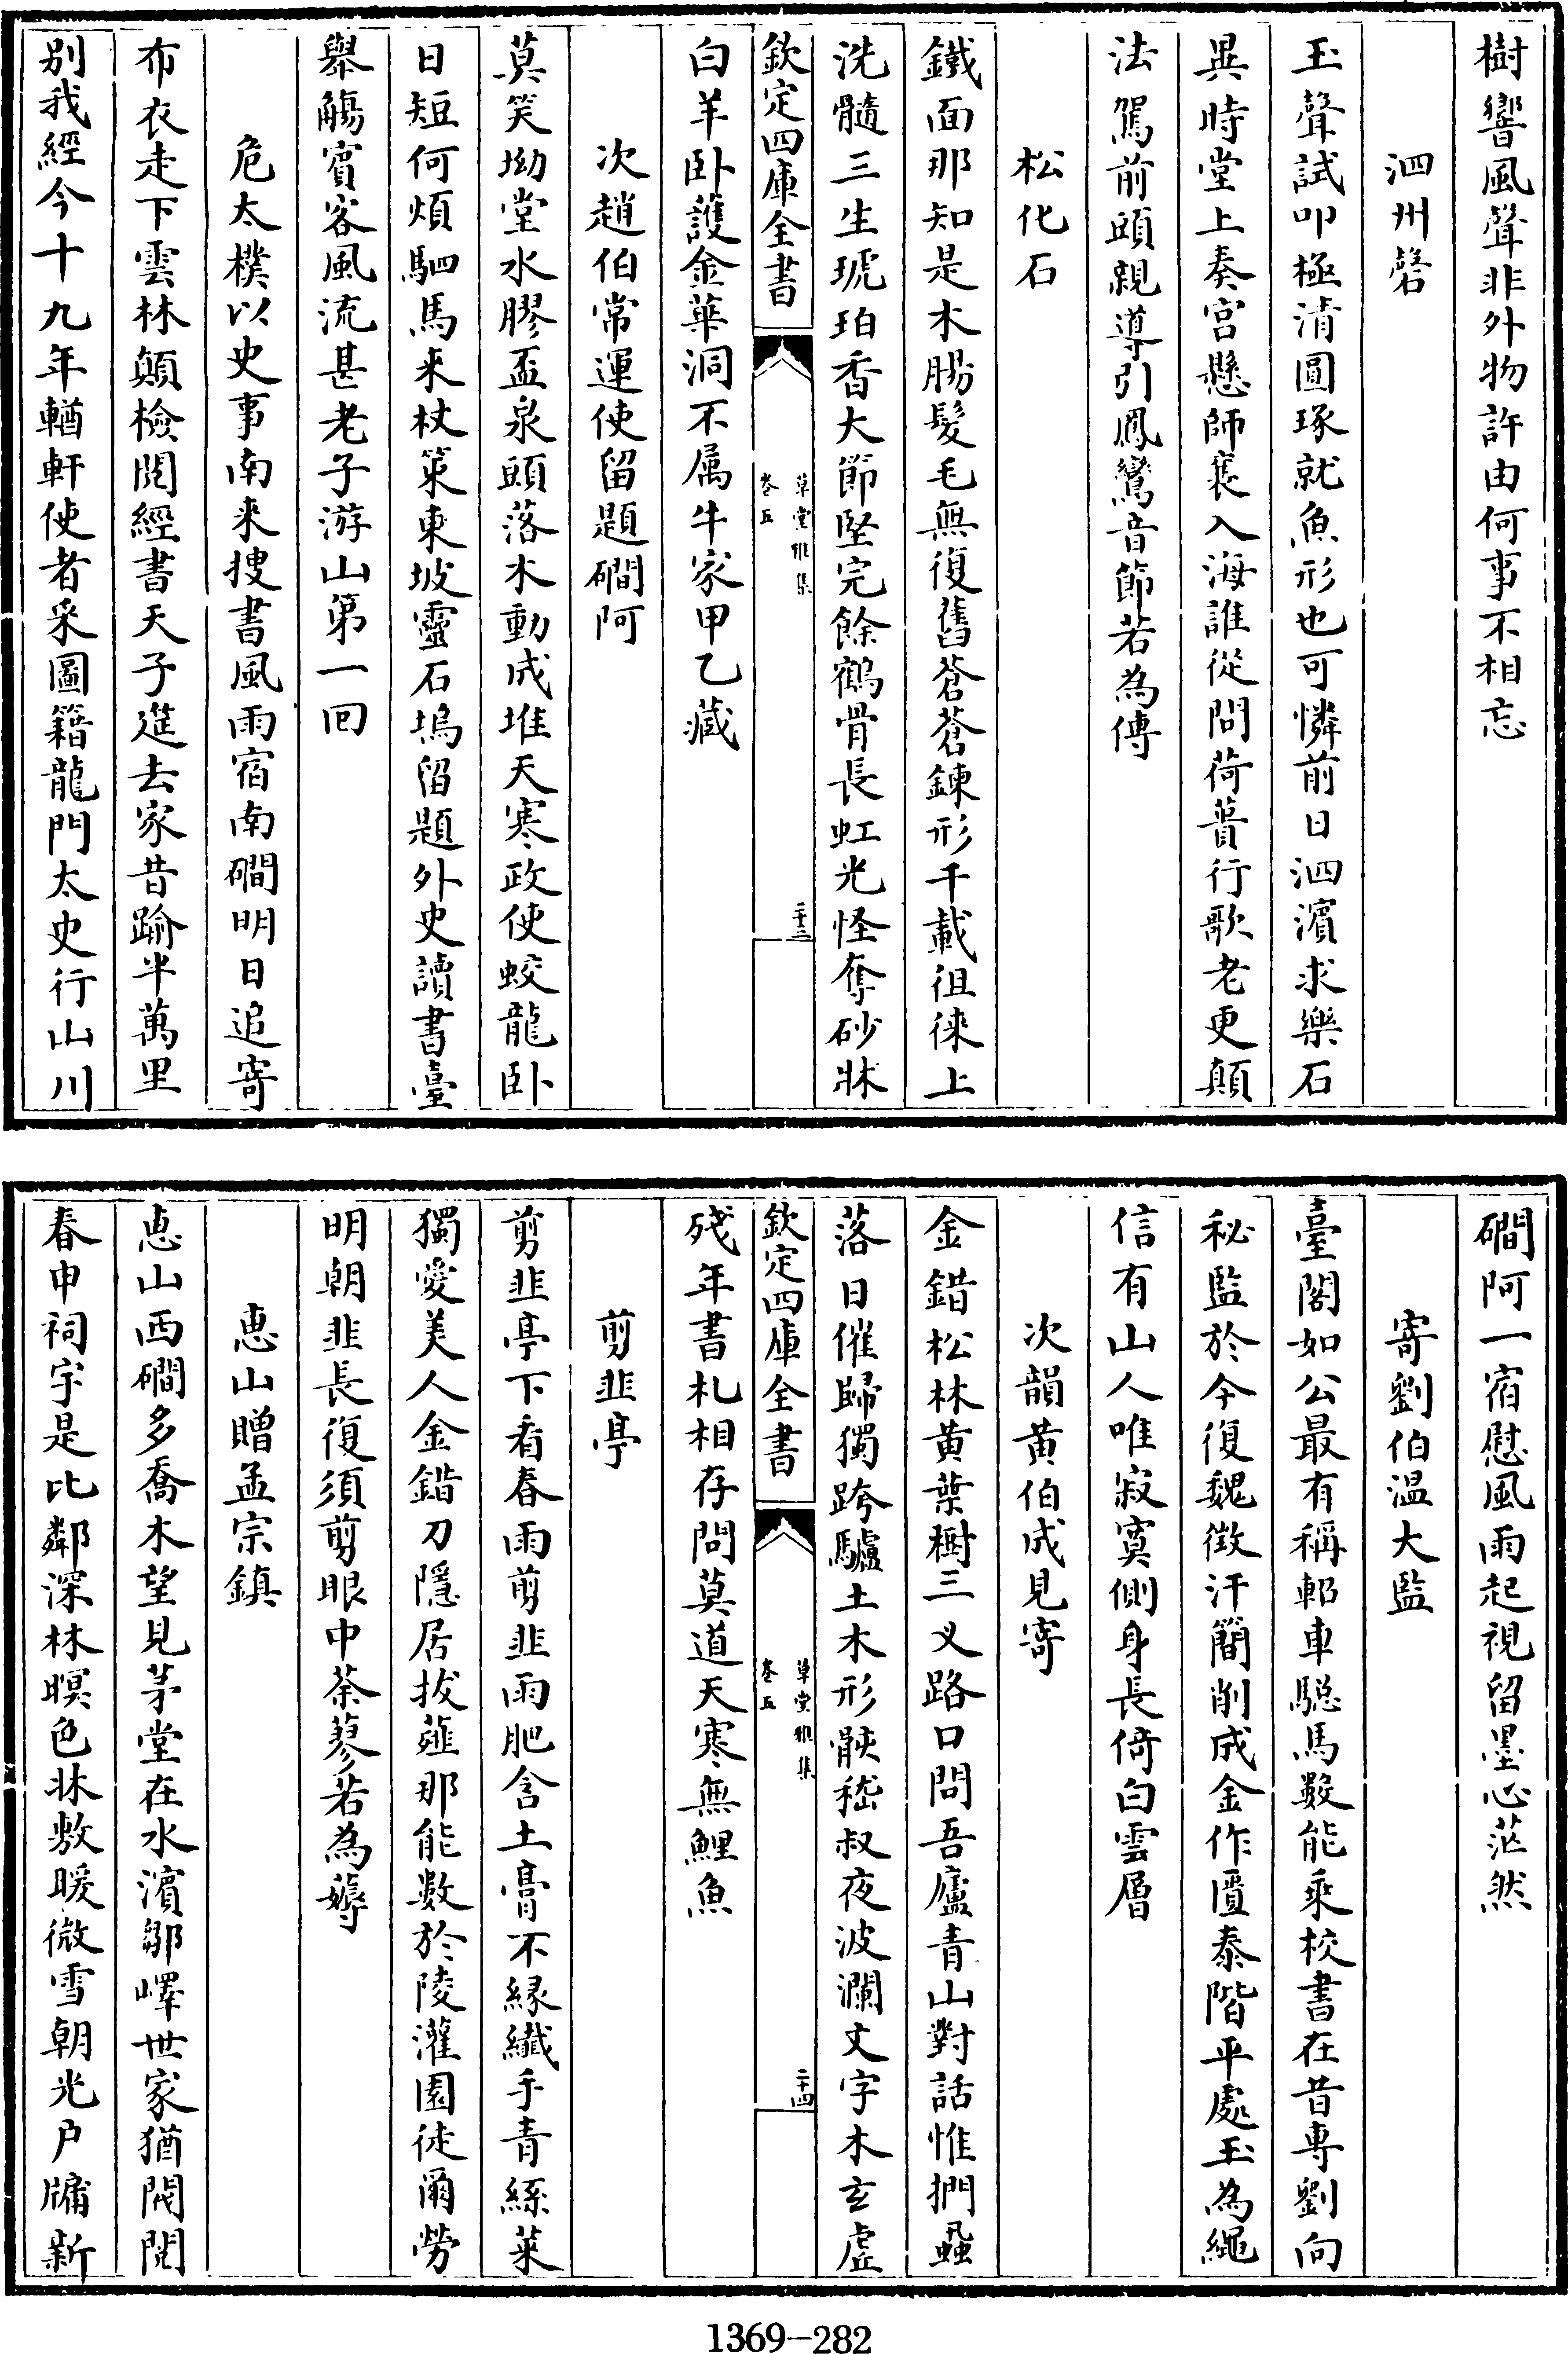 樹響風聲非外物許由何事不相忘
泗州磬
玉聲試叩極清圓琢就魚形也可憐前日泗濱求樂石
異時堂上奏宮懸師襄入海誰從問荷蕢行歌老更顛
法駕前頭親導引鳳鸞音節若為傳
松化石
鐵面那知是木腸髮毛無復舊蒼蒼鍊形千載徂徠上
洗髓三生琥珀香大節堅完餘鶴骨長虹光怪奪砂牀
欽定四庫全書
草堂雅集
卷五
二十三
白羊卧護金華洞不属牛家甲乙藏
次趙伯常運使留題磵阿
莫笑坳堂水膠盃泉頭落木動成堆天寒政使蛟龍卧
日短何煩駟馬来杖策東坡靈石塢留題外史讀書臺
舉觴賓客風流甚老子游山第一回
危太樸以史事南来搜書風雨宿南磵明日追寄
布衣走下雲林顛檢閱經書天子筵去家昔踰半萬里
别我經今十九年輶軒使者采圖籍龍門太史行山川
磵阿一宿慰風雨起視留墨心茫然
寄劉伯温大監
臺閣如公最有稱軺車驄馬數能乘校書在昔專劉向
秘監於今復魏徵汗簡削成金作匱泰階平處玉為繩
信有山人唯寂寞側身長倚白雲層
次韻黄伯成見寄
金錯松林黄葉樹三叉路口問吾廬青山對話惟捫蝨
落日催歸獨跨驢土木形骸嵇叔夜波瀾文字木玄虛
欽定四庫全書
草堂雅集
卷五
二十四
残年書札相存問莫道天寒無鯉魚
剪韭亭
剪韭亭下看春雨剪韭雨肥含土膏不緣纎手青絲菜
獨愛美人金錯刀隱居拔薤那能數於陵灌園徒爾勞
明朝韭長復須剪眼中荼蓼若為薅
惠山贈孟宗鎮
恵山西磵多喬木望見茅堂在水濱鄒嶧世家猶閥閱
春申祠宇是比鄰深林暝色牀敷暖微雪朝光户牖新
1369-282